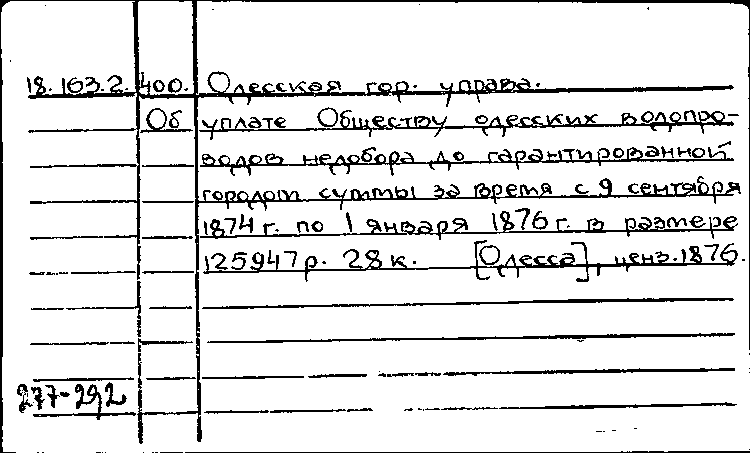 18.163.2.400. Одесская гор. управа.
Об уплате Обществу одесских водопро-
водов недобора до гарантированной
городом суммы за время с 9 сентября
1874 г. по 1 января 1876 г. в размере
125947 р. 28 к. [Одесса], ценз. 1876.
277-292